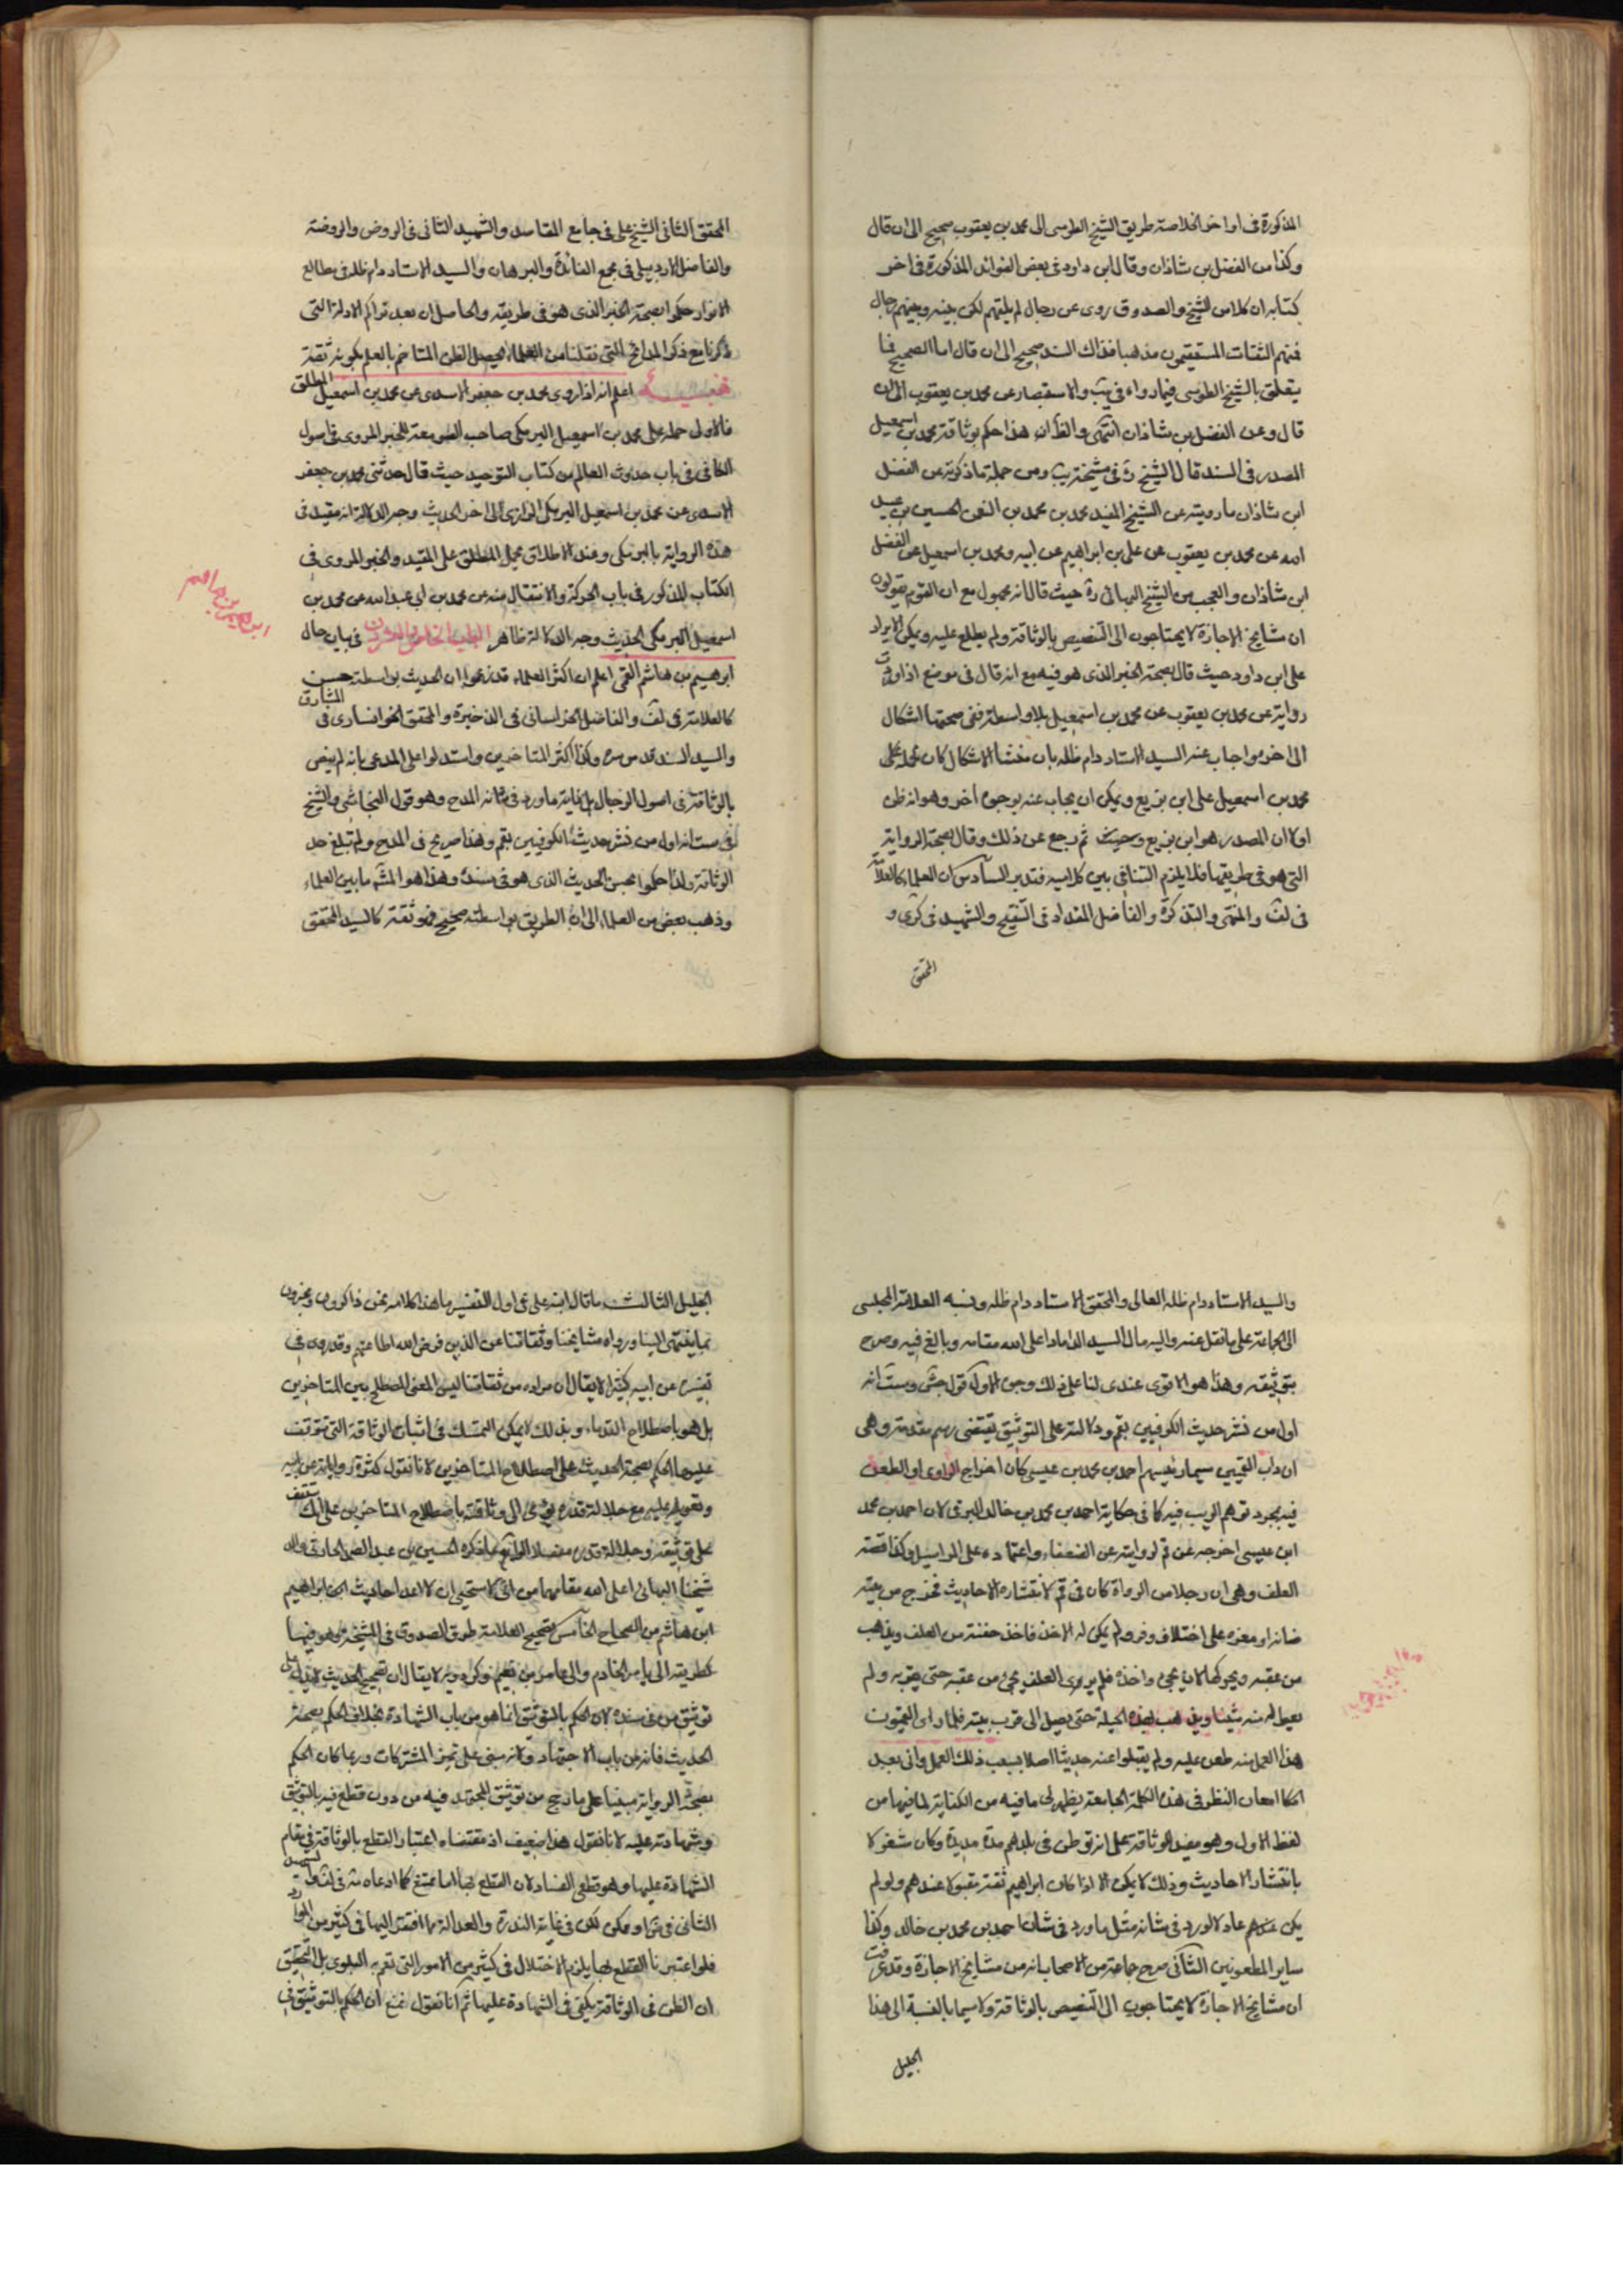 المذكورة في اواخر الخلاصة طريق الشيخ الطوسي الى محمد بن يعقوب صحيح الى ان قال
وكذا من الفضل بن شاذان وقال ابن داود في بعض الفوائد المذكورة في اخر
كتابه ان كلا من الشيخ والصدوق روى عن رجال لم يلقهم لكن بينه وبينهم رجال
فمنهم الثقات المستقيمون مذهبا فذاك السند صحيح الى ان قال اما الصحيح فما
يتعلق بالشيخ الطوسي فيما رواه في يب والاستبصار عن محمد بن يعقوب الى ان
قال وعن الفضل بن شاذان انتهى والظ ان هذا حكم بوثاقة محمد بن اسمعيل
المصدر في السند قال الشيخ ره في مشيخة يب ومن جملة ما ذكرته عن الفضل
ابن شاذان ما رويته عن الشيخ المفيد محمد بن محمد بن النعمن الحسين بن عبيد
الله عن محمد بن يعقوب عن علي بن ابراهيم عن ابيه ومحمد بن اسمعيل عن الفضل
ابن شاذان والعجب من الشيخ البهائي ره حيث قال انه مجهول مع ان القوم يقولون
ان مشايخ الاجازة لا يحتاجون الى التنصيص بالوثاقة ولم يطلع عليه ويمكن الايراد
على ابن داود حيث قال بصحة الخبر الذي هو فيه مع انه قال في موضع اذا وردت
رواية عن محمد بن يعقوب عن محمد بن اسمعيل بلا واسطة ففي صحتها اشكال
الى اخر واجاب عنه السيد الاستاد دام ظله بان منشا الاشكال كان لحمله على
محمد بن اسمعيل على ابن بزيع ويمكن ان يجاب عنه بوجوه اخر وهو انه ظن
اولا ان المصدر هو ابن بزيع وحيث ثم رجع عن ذلك وقال بصحة الرواية
التي هو في طريقها فلا يلزم التنافي بين كلاميه فتدبر السادس ان العلماء كالعلامة
في لف والمنتهى والتذكرة والفاضل المقداد في التنقيح والشهيد في كرى و
المحقق
المحقق الثاني الشيخ علي في جامع المقاصد والشهيد الثاني في الروض والروضة
والفاضل الاردبيلي في مجمع الفائدة والبرهان والسيد الاستاد دام ظله في مطالع
الانوار حكموا بصحة الخبر الذي هو في طريقه والحاصل ان بعد تراكم الادلة التي
ذكرنا مع ذكر المدائح التي نقلنا من العلماء يحصل الظن المتاخم بالعلم بكونه ثقة
تنبيه اعلم انه اذا روى محمد بن جعفر الاسدي عن محمد بن اسمعيل المطلق
فالاولى حمله على محمد بن اسمعيل البرمكي صاحب الصومعة للخبر المروي في اصول
الكافي في باب حدوث العالم من كتاب التوحيد حيث قال حدثني محمد بن جعفر
الاسدي عن محمد بن اسمعيل البرمكي الرازي الى اخر الحديث وجه الدلالة انه مقيد في
هذه الرواية بالبرمكي وعند الاطلاق يحمل المطلق على المقيد والخبر المروي في
الكتاب المذكور في باب الحركة والانتقال منه عن محمد بن ابي عبد الله عن محمد بن
اسمعيل البرمكي الحديث وجه الدلالة ظاهر المطلب الخامس والعشرون في بيان حال
ابرهيم بن هاشم
ابرهيم بن هاشم القمي اعلم ان اكثر العلماء قد زعموا ان الحديث بواسطته حسن
كالعلامة في لف والفاضل الخراساني في الذخيرة والمحقق الخوانساري في المشارق
والسيد السند قدس سره وكذا اكثر المتاخرين واستدلوا على المدعى بانه لم ينص
بالوثاقة في اصول الرجال بل غاية ما ورد في شانه المدح وهو قول النجاشي والشيخ
في ست انه اول من نشر حديث الكوفيين بقم وهذا صريح في المدح ولم تبلغ حد
الوثاقة ولذا حكموا بحسن الحديث الذي هو في سنده وهذا هو المشه ما بين العلماء
وذهب بعض من العلماء الى ان الطريق بواسطته صحيح فهو ثقة كالسيد المحقق
والسيد الاستاد دام ظله العالي والمحقق الاستاد دام ظله ونسبه العلامة المجلسي
الى الجماعة على ما نقل عنه واليه مال السيد الداماد اعلى الله مقامه وبالغ فيه وصرح
بتوثيقه وهذا هو الاقوى عندي لنا على ذلك وجوه الاول قول جش وست انه
اول من نشر حديث الكوفيين بقم ودلالته على التوثيق يقتضي رسم مقدمة وهي
ان داب القميين سيما رئيسهم احمد بن محمد بن عيسى كان اخراج الراوي او الطعن
فيه بمجرد توهم الريب فيه كما في حكاية احمد بن محمد بن خالد البرقي لان احمد بن محمد
ابن عيسى اخرجه عن قم لروايته عن الضعفاء واعتماده على المراسيل وكذا قصة
العلف وهي ان رجلا من الرواة كان في قم لانتشاره الاحاديث فخرج من بيته
ضانه او معزه على اختلاف وفر ولم يكن له الاخذ فاخذ حفنة من العلف ويذهب
من عقبه ويحركها لان يجئ واخذه فلم ير العلف يجئ من عقبه حتى يقربه ولم
يعط له منه شيئا ويذهب بهذه الحيلة حتى يصل الى قرب بيته فلما راى القميون
هذا العمل منه طعن عليه ولم يقبلوا عنه حديثا اصلا بسبب ذلك العمل واني بعد
امعان النظر في هذه الكلمة الجامعة يظهر لي ما فيه من الكناية لما فيها من
لفظ الاول وهو مفيد الوثاقة على انه توطن في بلدهم مدة مديدة وكان مشغولا
بانتشار الاحاديث وذلك لا يمكن الا اذا كان ابراهيم ثقة مقبولا عندهم ولو لم
يكن عندهم عادلا لورد في شانه مثل ما ورد في شان احمد بن محمد بن خالد وكذا
ساير المطعونين الثاني صرح جماعة من الاصحاب انه من مشايخ الاجازة وقد عرفت
ان مشايخ الاجازة لا يحتاجون الى التنصيص بالوثاقة ولا سيما بالنسبة الى هذا
الجليل
الجليل الثالث ما قال ابنه علي في اول التفسير ما هذا كلامه نحن ذاكرون ومخبرون
بما ينتهي الينا ورواه مشايخنا وثقاتنا عن الذين فرض الله اطاعتهم وقد روى في
تفسيره عن ابيه كثيرا لا يقال ان مراده من ثقاتنا ليس المعنى المصطلح بين المتاخرين
بل هو باصطلاح القدماء وبذلك لا يمكن التمسك في اثبات الوثاقة التي تتوقف
عليها الحكم بصحة الحديث على اصطلاح المتاخرين لانا نقول كثرة رواياته عن ابيه
وتعويله عليه مع جلالة قدره يؤدي الى وثاقته باصطلاح المتاخرين
على توثيقه وجلالة قدره مفصلا الرابع ما ذكره الحسين بن عبد الصمد الحارثي والد
شيخنا البهائي اعلى الله مقامهما من اني لا ستحيي ان لا اعد احاديث ابراهيم
ابن هاشم من الصحاح الخامس تصحيح العلامة طرق الصدوق في المشيخة وهو فيها
كطريقه الى ياسر الخادم والى عامر بن نعيم وكردويه لا يقال ان تصحيح الحديث لا يدل على
توثيق من في سنده لان الحكم بالتوثيق انما هو من باب الشهادة بخلاف الحكم بصحة
الحديث فانه من باب الاجتهاد ولانه مبني على تميز المشتركات وربما كان الحكم
بصحة الرواية مبنيا على ما رجح من توثيق المجتهد فيه من دون قطع فيه بالتوثيق
وشهادته عليه لانا نقول هذا ضعيف اذ مقتضاه اعتبار القطع بالوثاقة في مقام
الشهادة عليها وهو قطعي الفساد لان القطع بها اما ممتنع كما ادعاه
الثاني في او ممكن لكن في غاية الندرة والعدالة مما افتقر اليها في كثير من الموارد
فلو اعتبرنا القطع بها يلزم الاختلال في كثير من الامور التي تعم به البلوى بل التحقيق
ان الظن في الوثاقة يكفي في الشهادة عليها ثم انا نقول نمنع ان الحكم بالتوثيق في